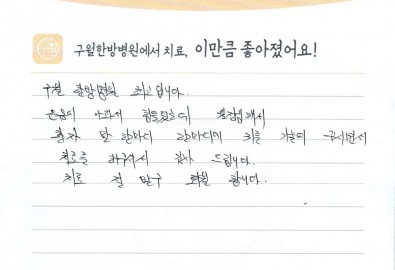 구월한방병원에서 치료, 이만큼 좋아졌어요!
구월 한방병원 최고입니다.
온몸이 아파서 힘들었는데 원장님께서
환자 말 한마디 한마디에 귀를 기울여 주시면서
치료를 해주셔서 감사 드립니다.
치료 잘 받구 갑니다.